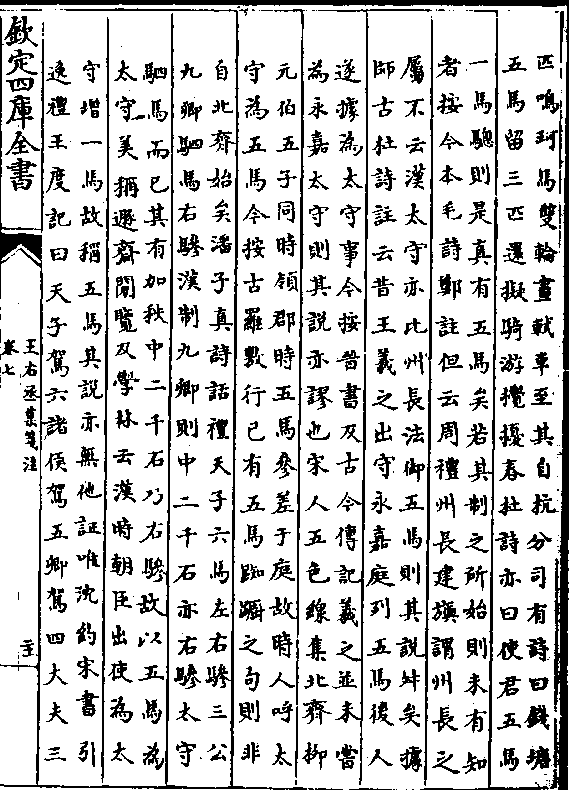 匹鳴珂馬雙輪畫軾車至其自抗分司有詩曰錢塘
五馬留三匹還擬騎游攪擾春杜詩亦曰使君五馬
一馬驄則是真有五馬矣若其制之所始則未有知
者按今本毛詩鄭註但云周禮州長建旟謂州長之
屬不云漢太守亦比州長法御五馬則其說舛矣據
師古杜詩註云昔王羲之出守永嘉庭列五馬後人
遂據為太守事今按晉書及古今傳記羲之並未嘗
為永嘉太守則其說亦謬也宋人五色線集北齊柳
元伯五子同時領郡時五馬參差于庭故時人呼太
守為五馬今按古羅敷行已有五馬踟躕之句則非
自北齊始矣潘子真詩話禮天子六馬左右驂三公
九卿駟馬右驂漢制九卿則中二千石亦右驂太守
駟馬而已其有加秩中二千石乃右驂故以五馬為
太守美稱遯齋閒覽及學林云漢時朝臣出使為太
守增一馬故稱五馬其說亦無他証唯沈約宋書引
逸禮王度記曰天子駕六諸侯駕五卿駕四大夫三
欽定四庫全書
王右丞集箋注
卷七